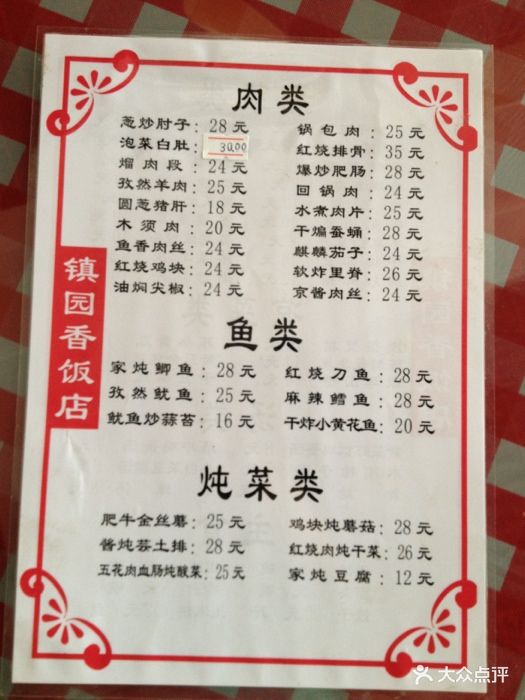 肉类
葱炒肘子：28元
锅包肉：25元
泡菜白肚：30.00
红烧排骨：35元
熘肉段：24元
爆炒肥肠：28元
孜然羊肉：25元
回锅肉：24元
圆葱猪肝：18元
水煮肉片：25元
木须肉：20元
干煸蚕蛹：28元
鱼香肉丝：24元
麒麟茄子：24元
红烧鸡块：24元
软炸里脊：26元
油焖尖椒：24元
京酱肉丝：24元
镇园香饭店
鱼类
家炖鲫鱼：28元
红烧刀鱼：28元
孜然鱿鱼：25元
麻辣鳕鱼：28元
鱿鱼炒蒜苔：16元
干炸小黄花鱼：20元
炖菜类
肥牛金丝蘑：25元
鸡块炖蘑菇：28元
酱炖芸土排：28元
红烧肉炖干菜：26元
五花肉血肠炖酸菜：25元
家炖豆腐：12元
大众点评